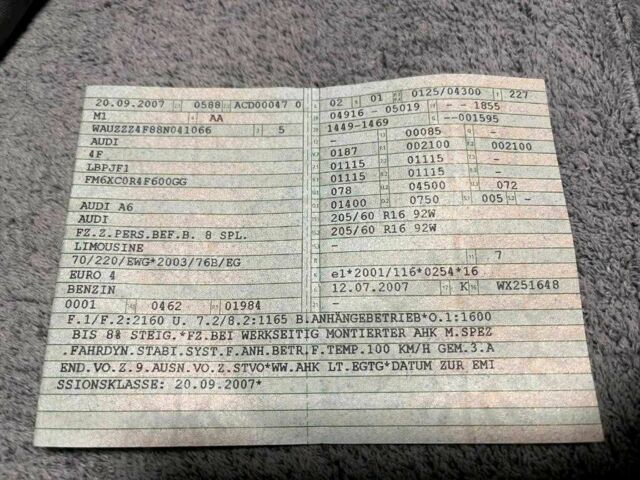 20.09.2007 0588 ACD00047 0
M1 AA
WAUZZZ4F88N041066 5
AUDI
4F
LBPJF1
FM6XC0R4F600GG
AUDI A6
AUDI
FZ.Z.PERS.BEF.B. 8 SPL.
LIMOUSINE
70/220/EWG*2003/76B/EG
EURO 4
BENZIN
0001 0462 01984
02 01 0125/04300 227
04916 - 05019 - - 1855
1449-1469 --001595
- 00085 -
0187 002100 002100
01115 01115 -
01115 01115 -
078 04500 072
01400 0750 005 -
205/60 R16 92W
205/60 R16 92W
-
- 7
e1*2001/116*0254*16
12.07.2007 K WX251648
-
F.1/F.2:2160 U. 7.2/8.2:1165 B.ANHÄNGEBETRIEB*O.1:1600
BIS 8% STEIG.*FZ.BEI WERKSEITIG MONTIERTER AHK M.SPEZ
.FAHRDYN.STABI.SYST.F.ANH.BETR.F.TEMP.100 KM/H GEM.3.A
END.VO.Z.9.AUSN.VO.Z.STVO*WW.AHK LT.EGTG*DATUM ZUR EMI
SSIONSKLASSE: 20.09.2007*